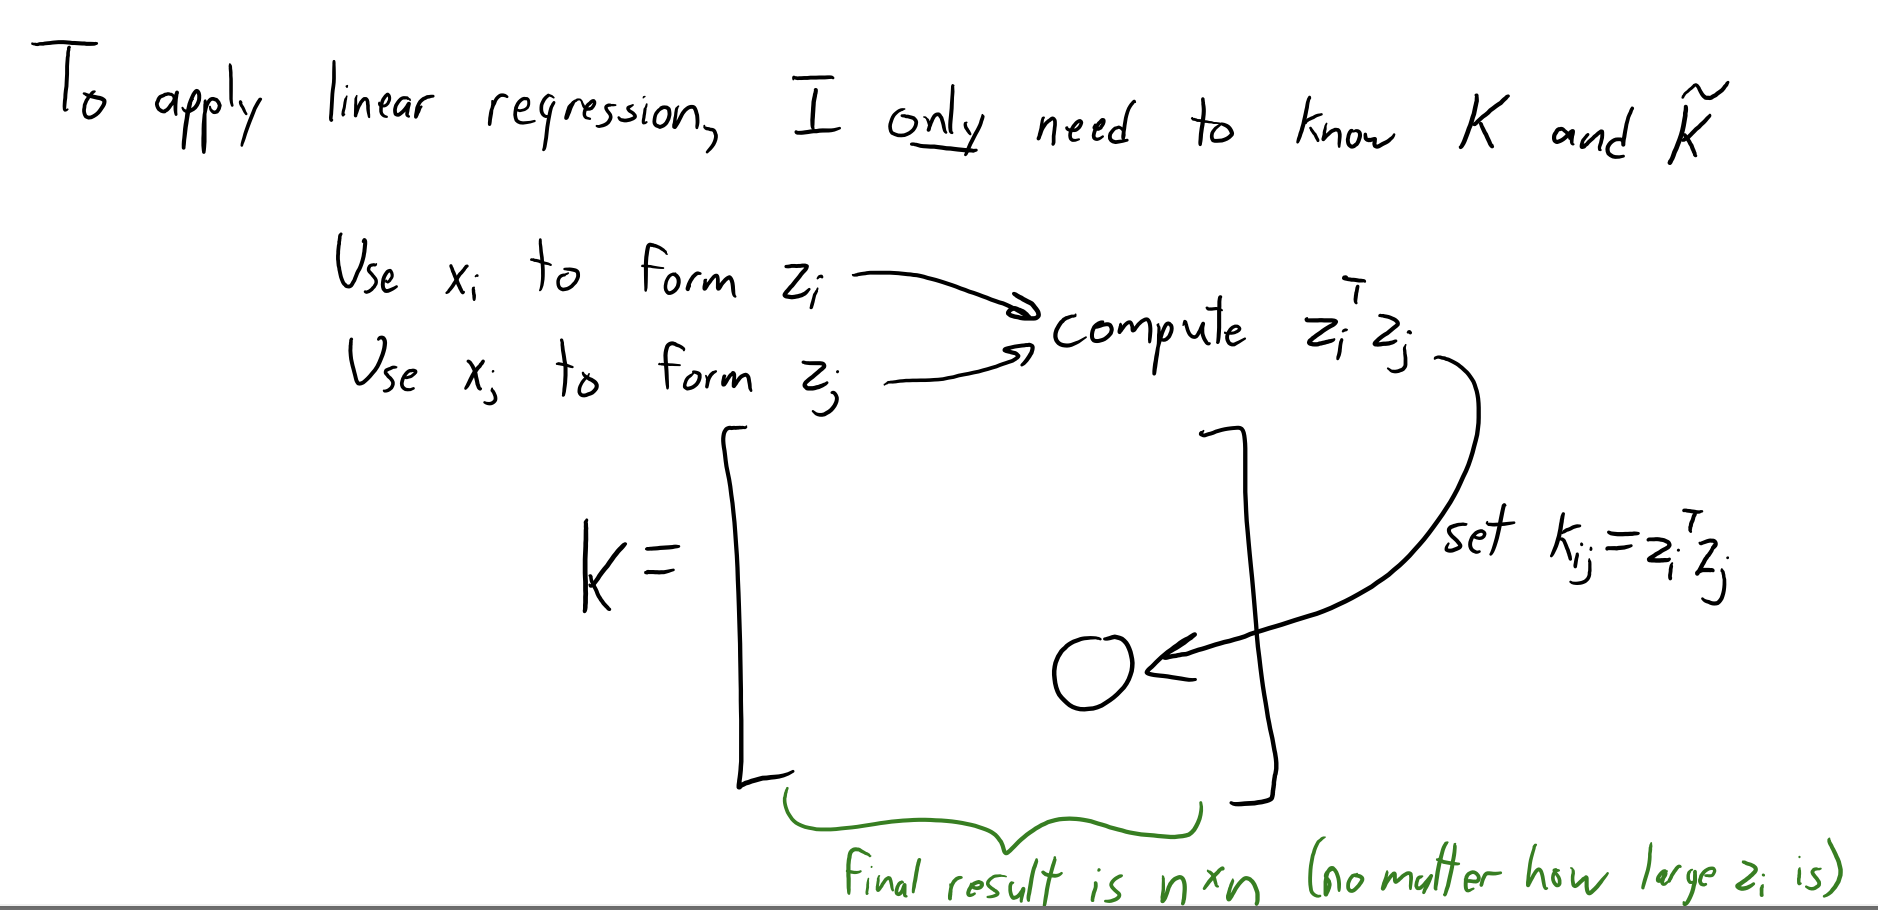 To apply linear regression, I only need to know K and K̃
Use xᵢ to form zᵢ
Use xⱼ to form zⱼ
compute zᵢᵀzⱼ
K =
set kᵢⱼ = zᵢᵀzⱼ
final result is n×n (no matter how large zᵢ is)